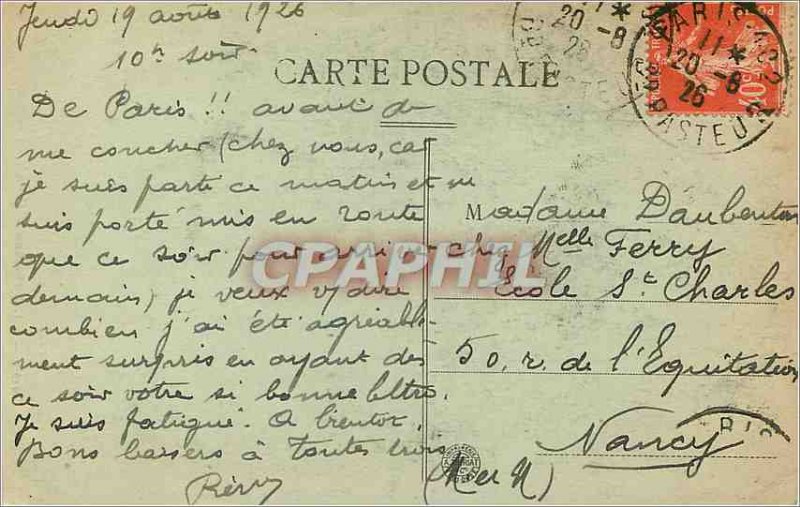 Jeudi 19 août 1926
10h soir
CARTE POSTALE
De Paris !! avant de
me coucher (chez vous, car
je suis parte ce matin et me
suis porté mis en route
que ce soir pour arriver
demain) je veux v/ dire
combien j'ai été agréable-
ment surpris en ayant des
ce soir votre si bonne lettre.
Je suis fatigué. A bientot.
Bons baisers à toutes trois
Madame Daubenton
chez Melle Ferry
École St Charles
50, r. de l'Equitation
Nancy
(M et M)
PARIS
11 *
20 - 8
26
PASTEUR
40c
CPAPHIL